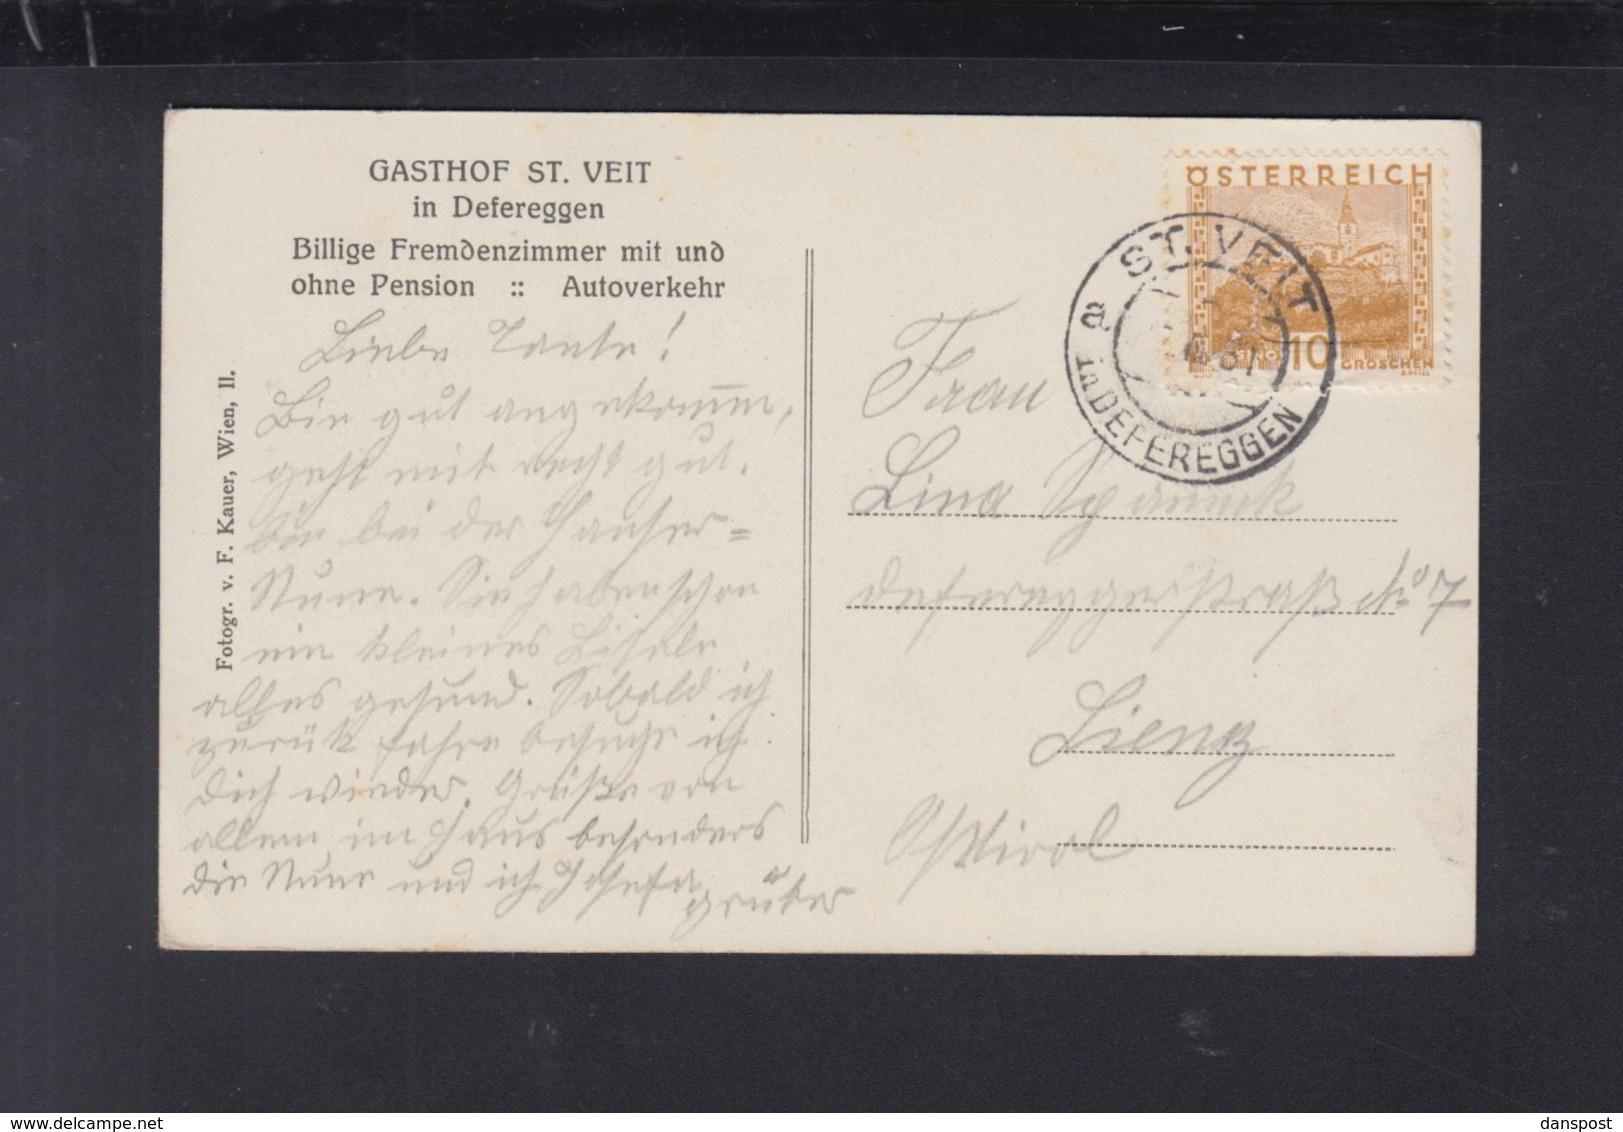 GASTHOF ST. VEIT
in Defereggen
Billige Fremdenzimmer mit und
ohne Pension :: Autoverkehr
Fotogr. v. F. Kauer, Wien, II.
Liebe Tante!
Bin gut angekomm̅en,
geht mir recht gut.
bin bei der Hauser=
Nune. Sie haben schon
ein kleines Lisele
alles gesund. Sobald ich
zurük fahre besuche ich
dich wieder. Grüße von
allem im Haus besonders
die Nune und ich Josefa
gruber
ÖSTERREICH
10
GROSCHEN
ST. VEIT
a
in DEFEREGGEN
Frau
Lina
defereggerstraße No 7
Lienz
Osttirol
delcampe.net
danspost